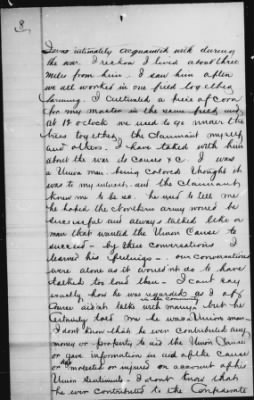 8
I was intimately acquainted with during
the war. I reckon I lived about three
miles from him. I saw him often
we all worked in one field together
farming. I cultivated a piece of corn
for my master in the same field and
at 12 o clock we used to go under the
trees together, the Claimant myself
and others. I have talked with him
about the war its causes &c. I was
a Union man. being colored thought it
was to my interest, and the Claimant
knew me to be so. he used to tell me
he hoped the Northern army would be
successful and always talked like a
man that wanted the Union Cause to
succeed - by these conversations I
learned his feelings - our conversations
were alone as it would not do to have
talked too loud then - I cant say
exactly how he was regarded as I off
in the community
talk with many - but he
certainly told me he was a Union man -
I dont know that he ever contributed any
money or property to aid the Union Cause
or gave information in aid of the cause
or was molested or injured on account of his
Union Sentiments - I dont know that
he ever contributed to the Confederate